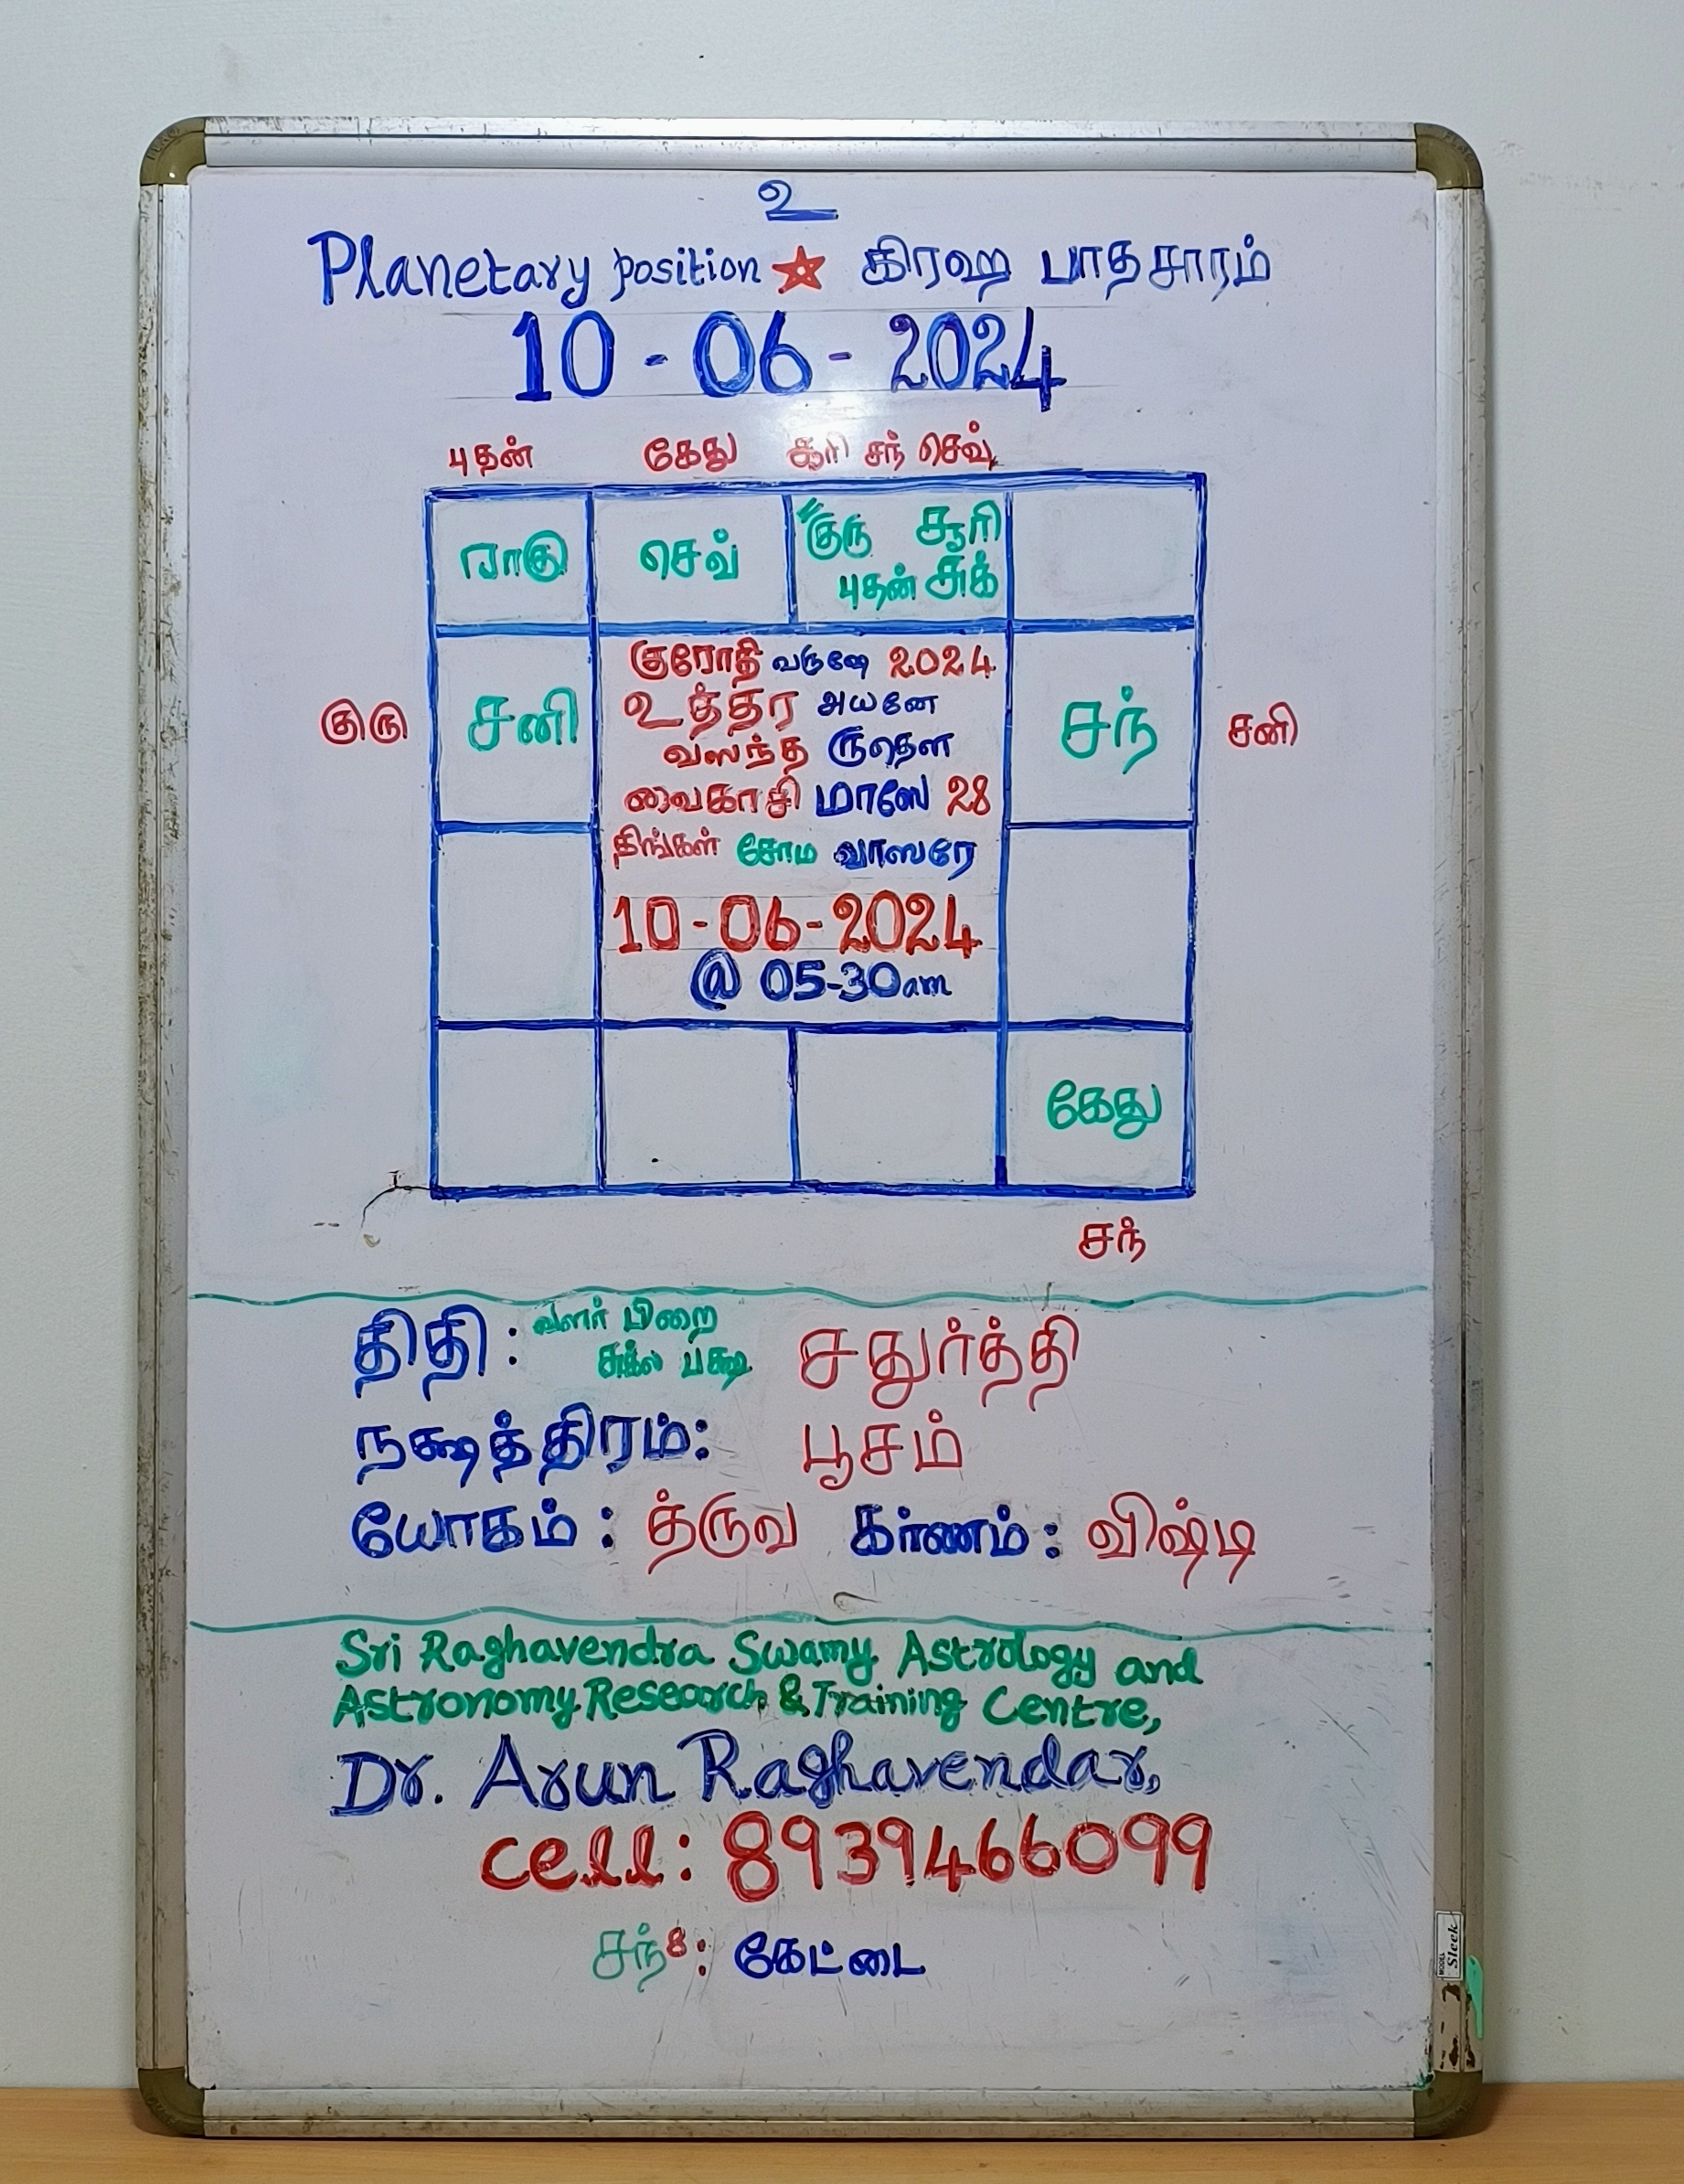 உ
Planetary position ★ கிரஹ பாதசாரம்
10 - 06 - 2024
புதன் கேது சூரி சந் செவ்
ராகு செவ் குரு சூரி
புதன் சுக்
குரோதி வருஷே 2024
உத்தர அயனே
குரு சனி வஸந்த ருதௌ சந் சனி
வைகாசி மாஸே 28
திங்கள் சோம வாஸரே
10-06-2024
@ 05-30am
கேது
சந்
திதி : வளர் பிறை
சுக்ல பக்ஷ சதுர்த்தி
நக்ஷத்திரம்: பூசம்
யோகம் : த்ருவ கர்ணம் : விஷ்டி
Sri Raghavendra Swamy Astrology and
Astronomy Research & Training Centre,
Dr. Arun Raghavendar,
cell: 8939466099
சந்8: கேட்டை
MODEL
Sleek